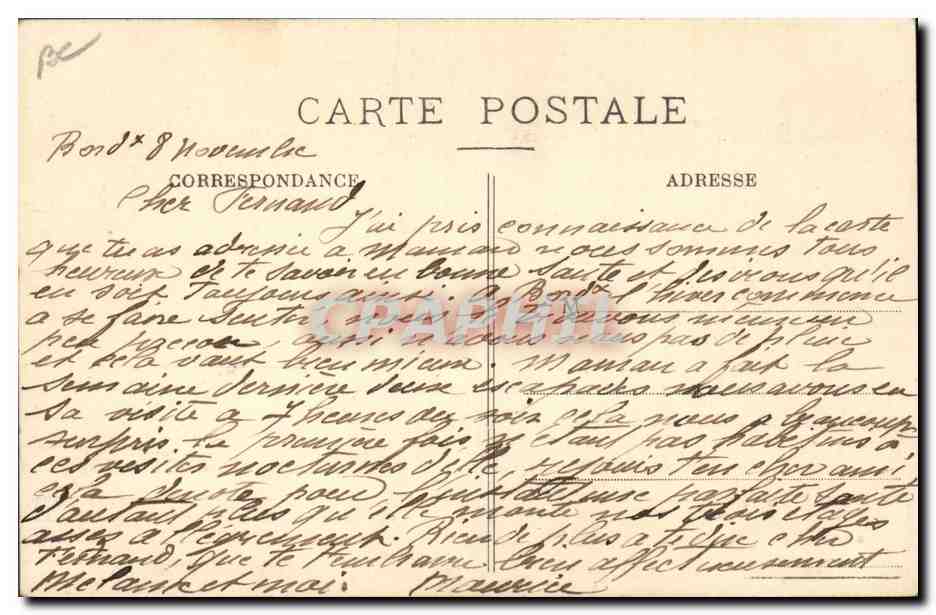 CARTE POSTALE
Bordx 8 novembre
CORRESPONDANCE
ADRESSE
Cher Fernand
J'ai pris connaissance de la carte
que tu as adressée à Maman nous sommes tous
heureux de te savoir en bonne santé et désirons qu'il
en soit toujours ainsi. A Bordx l'hiver commence
à se faire sentir mais
pas de pluie
et cela vaut bien mieux. Maman a fait la
semaine dernière deux escapades nous avons eu
sa visite à 7 heures du soir cela nous a beaucoup
surpris la première fois n'étant pas habitués à
ces visites nocturnes d'elle, réjouis t'en cher ami
cela dénote pour parfaite santé
d'autant plus qu'elle monte nos trois étages
assez à légèrement. Rien de plus à te dire cher
Fernand, que te bien affectueusement
Mélanie et moi. Maurice
CPAPHIL